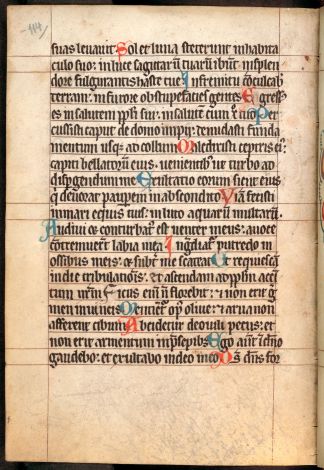 114
suas levavit. Sol et luna steterunt in habita
culo suo: in luce sagittarū tuarū ibūt. in splen
dore fulgurantis haste tue. In fremitu cōculcab
terram: in furore obstupefacies gentes. Egress
es in salutem ppłi tui: in salutē cum xpo tuo. Per
cussisti caput de domo impii: denudasti funda
mentum usq; ad collum. Maledixisti ceptris eiꝰ:
capiti bellatorū eius. venientib ut turbo ad
dispgendum me. Exultatio eorum sicut eius
q̄ devorat paupem in abscondito. Viā fecisti
in mari equis tuis: in luto aquarū multarū.
Audivi et conturbatꝰ est venter meus: a voce
cōtremuert labia mea. Ingdiaꝉ putredo in
ossibus meis: et subt me scateat. Ut requiescā
in die tribulatiōnis: et ascendam ad pplm acci
ctum nrm. Ficus eni nō florebit: et non erit g
men in vineis. Mentietꝉ opꝰ olive: et arva non
afferent cibum. Abscidetur de ovili pecus: et
non erit armentum in psepibꝰ. Ego autē ī dno
gaudebo: et exultabo in deo ihu meo. Dꝰ dns for